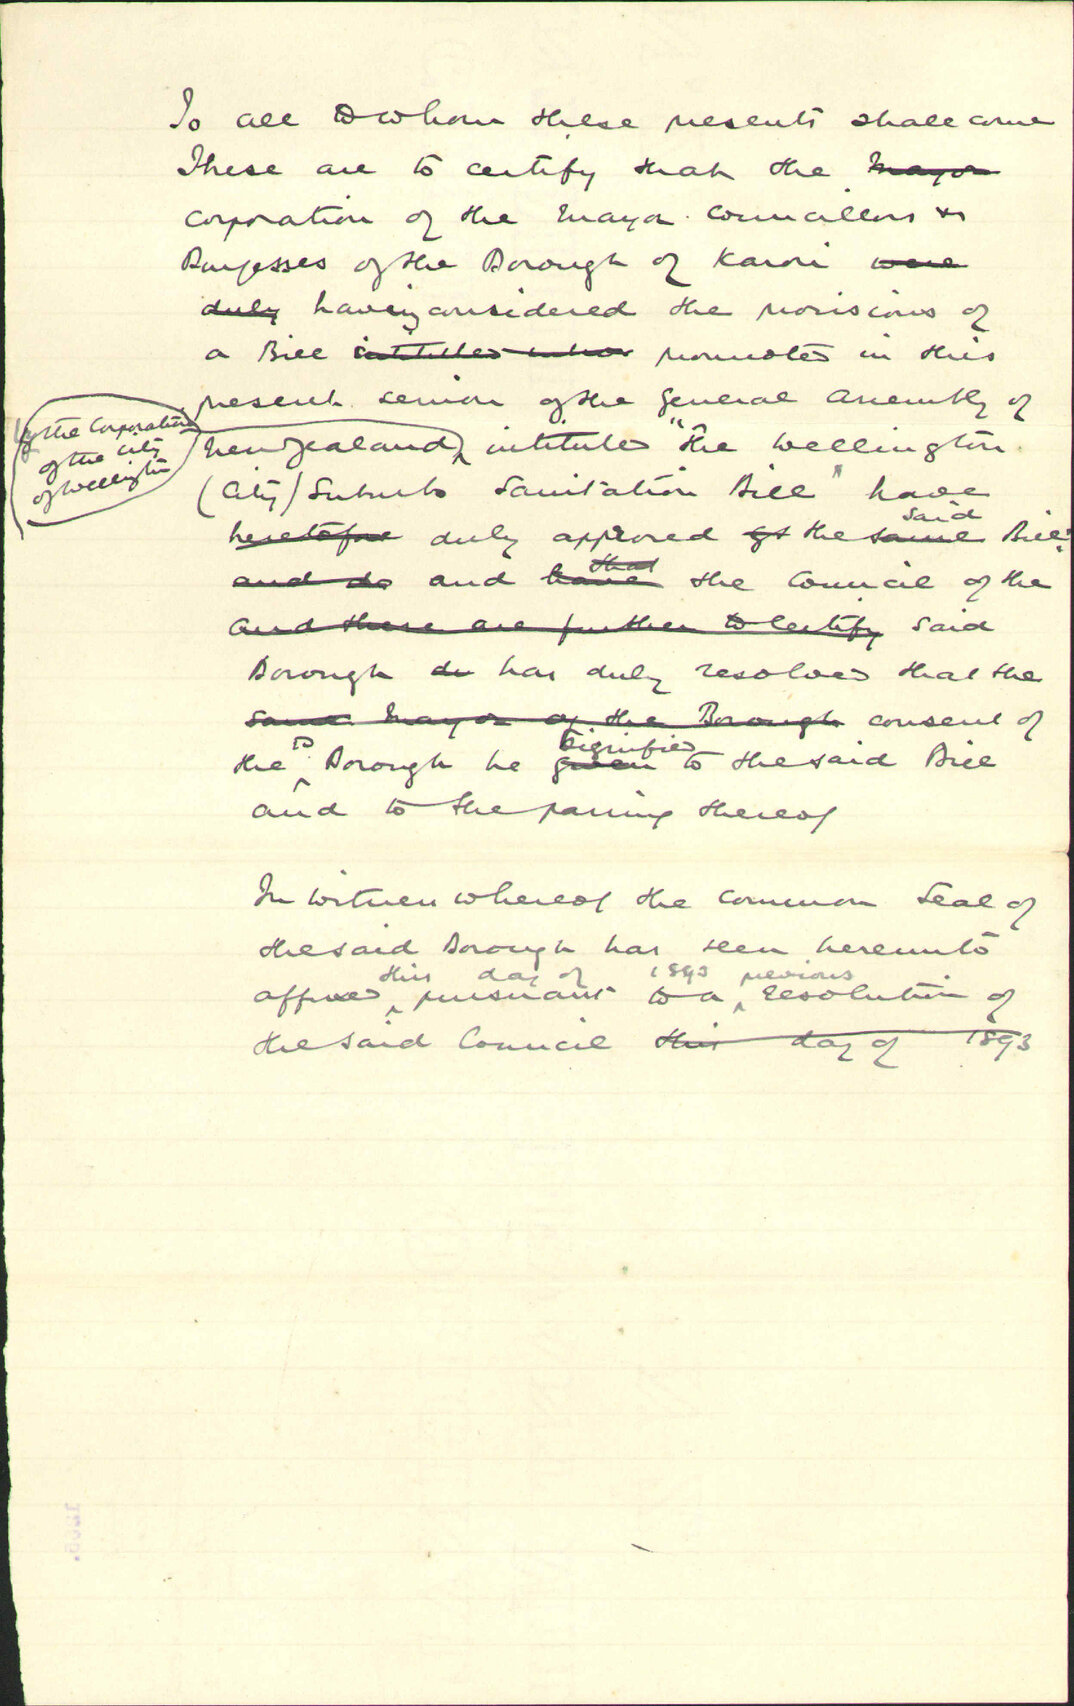 To all to whom these presents shall come
These are to certify that the Mayor
Corporation of the Mayor Councillors &
Burgesses of the Borough of Karori were
duly having considered the provisions of
a Bill promoted in this
present session of the General Assembly of
by the Corporation
of the City
of Wellington
New Zealand intituled "The Wellington
(City) Suburbs Sanitation Bill" have
said
heretofore duly approved of the same Bill
that
and do and have the Council of the
and these are further to certify said
Borough do has duly resolved that the
same Mayor of the Borough consent of
signified
the Borough be given to the said Bill
and to the passing thereof
In witness whereof the Common Seal of
the said Borough has been hereunto
this day of 1893 previous
affixed pursuant to a resolution of
the said Council this day of 1893